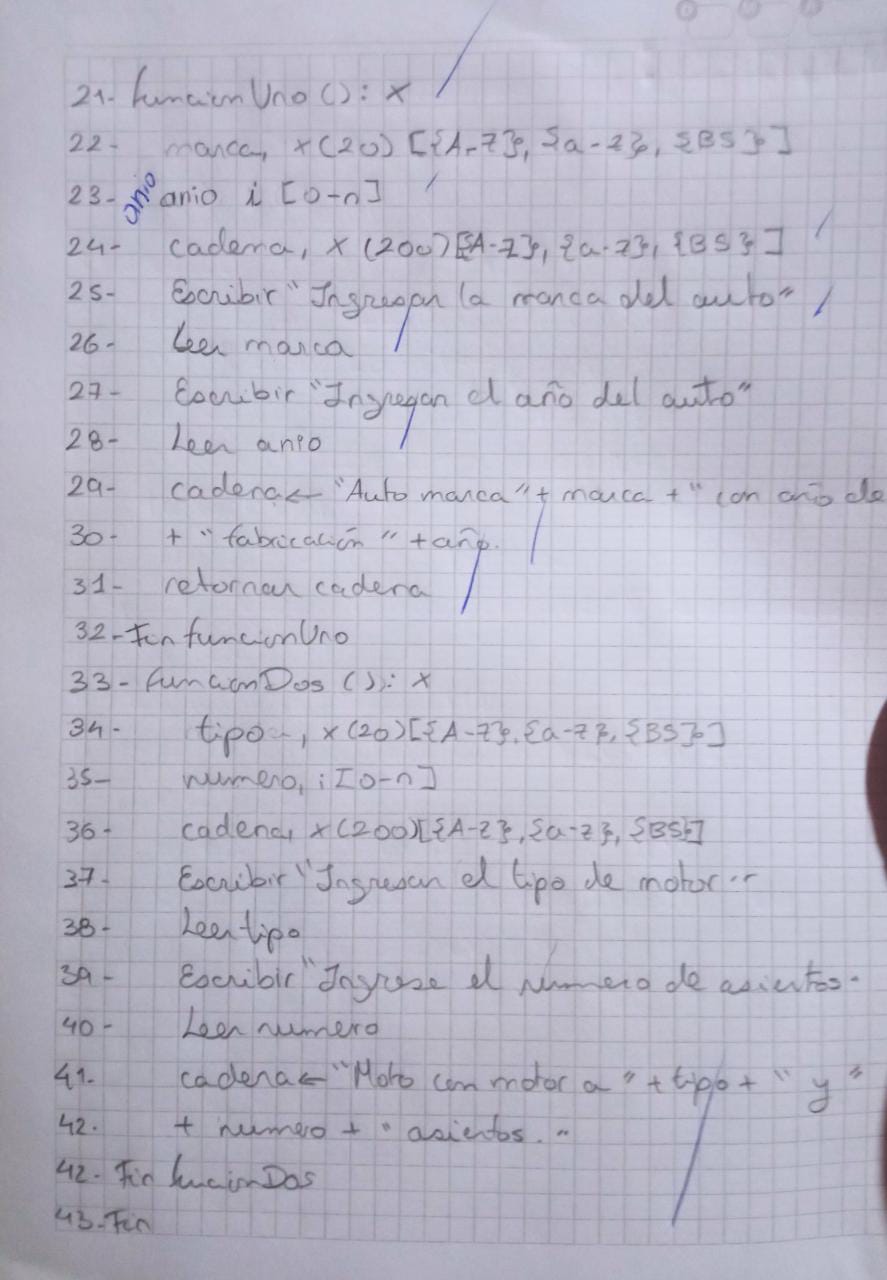 21- funcionUno (): x
22- marca, x(20) [{A-Z}, {a-z}, {BS}]
23- anio anio i [0-n]
24- cadena, x (200)[{A-Z}, {a-z}, {BS}]
25- Escribir "Ingresar la marca del auto"
26- Leer marca
27- Escribir "Ingresar el año del auto"
28- Leer anio
29- cadena← "Auto marca" + marca + " con año de
30- + " fabricación " + año.
31- retornar cadena
32-Fin funcionUno
33- funcionDos (): x
34- tipo, x(20)[{A-Z}, {a-z}, {BS}]
35- numero, i[0-n]
36- cadena, x(200)[{A-Z}, {a-z}, {BS}]
37- Escribir "Ingresar el tipo de motor"
38- Leer tipo
39- Escribir "Ingrese el número de asientos"
40- Leer numero
41- cadena← "Moto con motor a " + tipo + " y "
42. + numero + " asientos."
42. Fin funcionDos
43-Fin